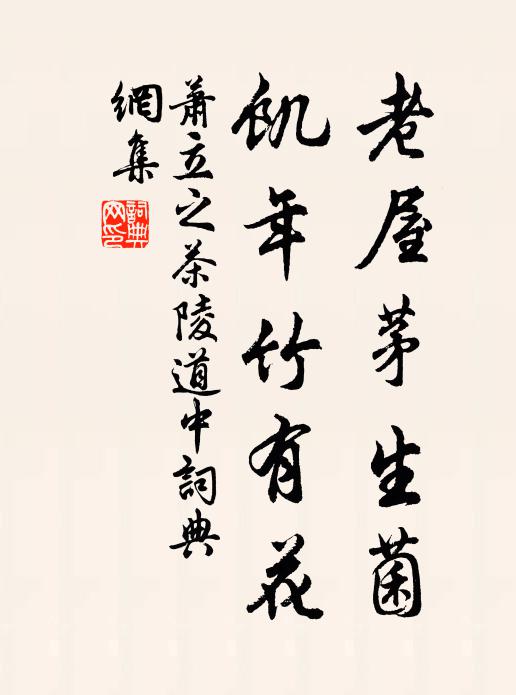 老屋茅生菌
飢年竹有花
蕭立之茶陵道中詞典
網集
詞典網印